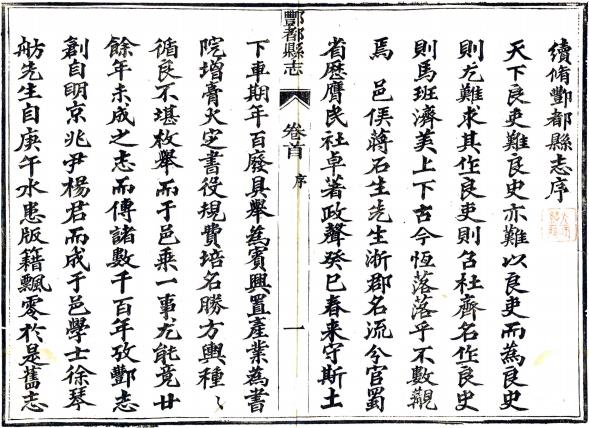 續脩酆都縣志序
天下良吏難良史亦難以良吏而爲良史
則尤難求其作良吏則召杜齊名作良史
則馬班濟美上下古今恆落落乎不數覯
焉 邑侯蔣石生先生浙郡名流分官蜀
省歷膺民社卓著政聲癸巳春來守斯土
酆都縣志
卷首
序
一
下車期年百廢具舉爲賓興置產業爲書
院增膏火定書役規費培名勝方輿種〻
循良不堪枚舉而于邑乘一事尤能竟廿
餘年未成之志而傳諸數千百年攷酆志
創自明京兆尹楊君而成于邑學士徐琴
舫先生自庚午水患版籍飄零於是舊志